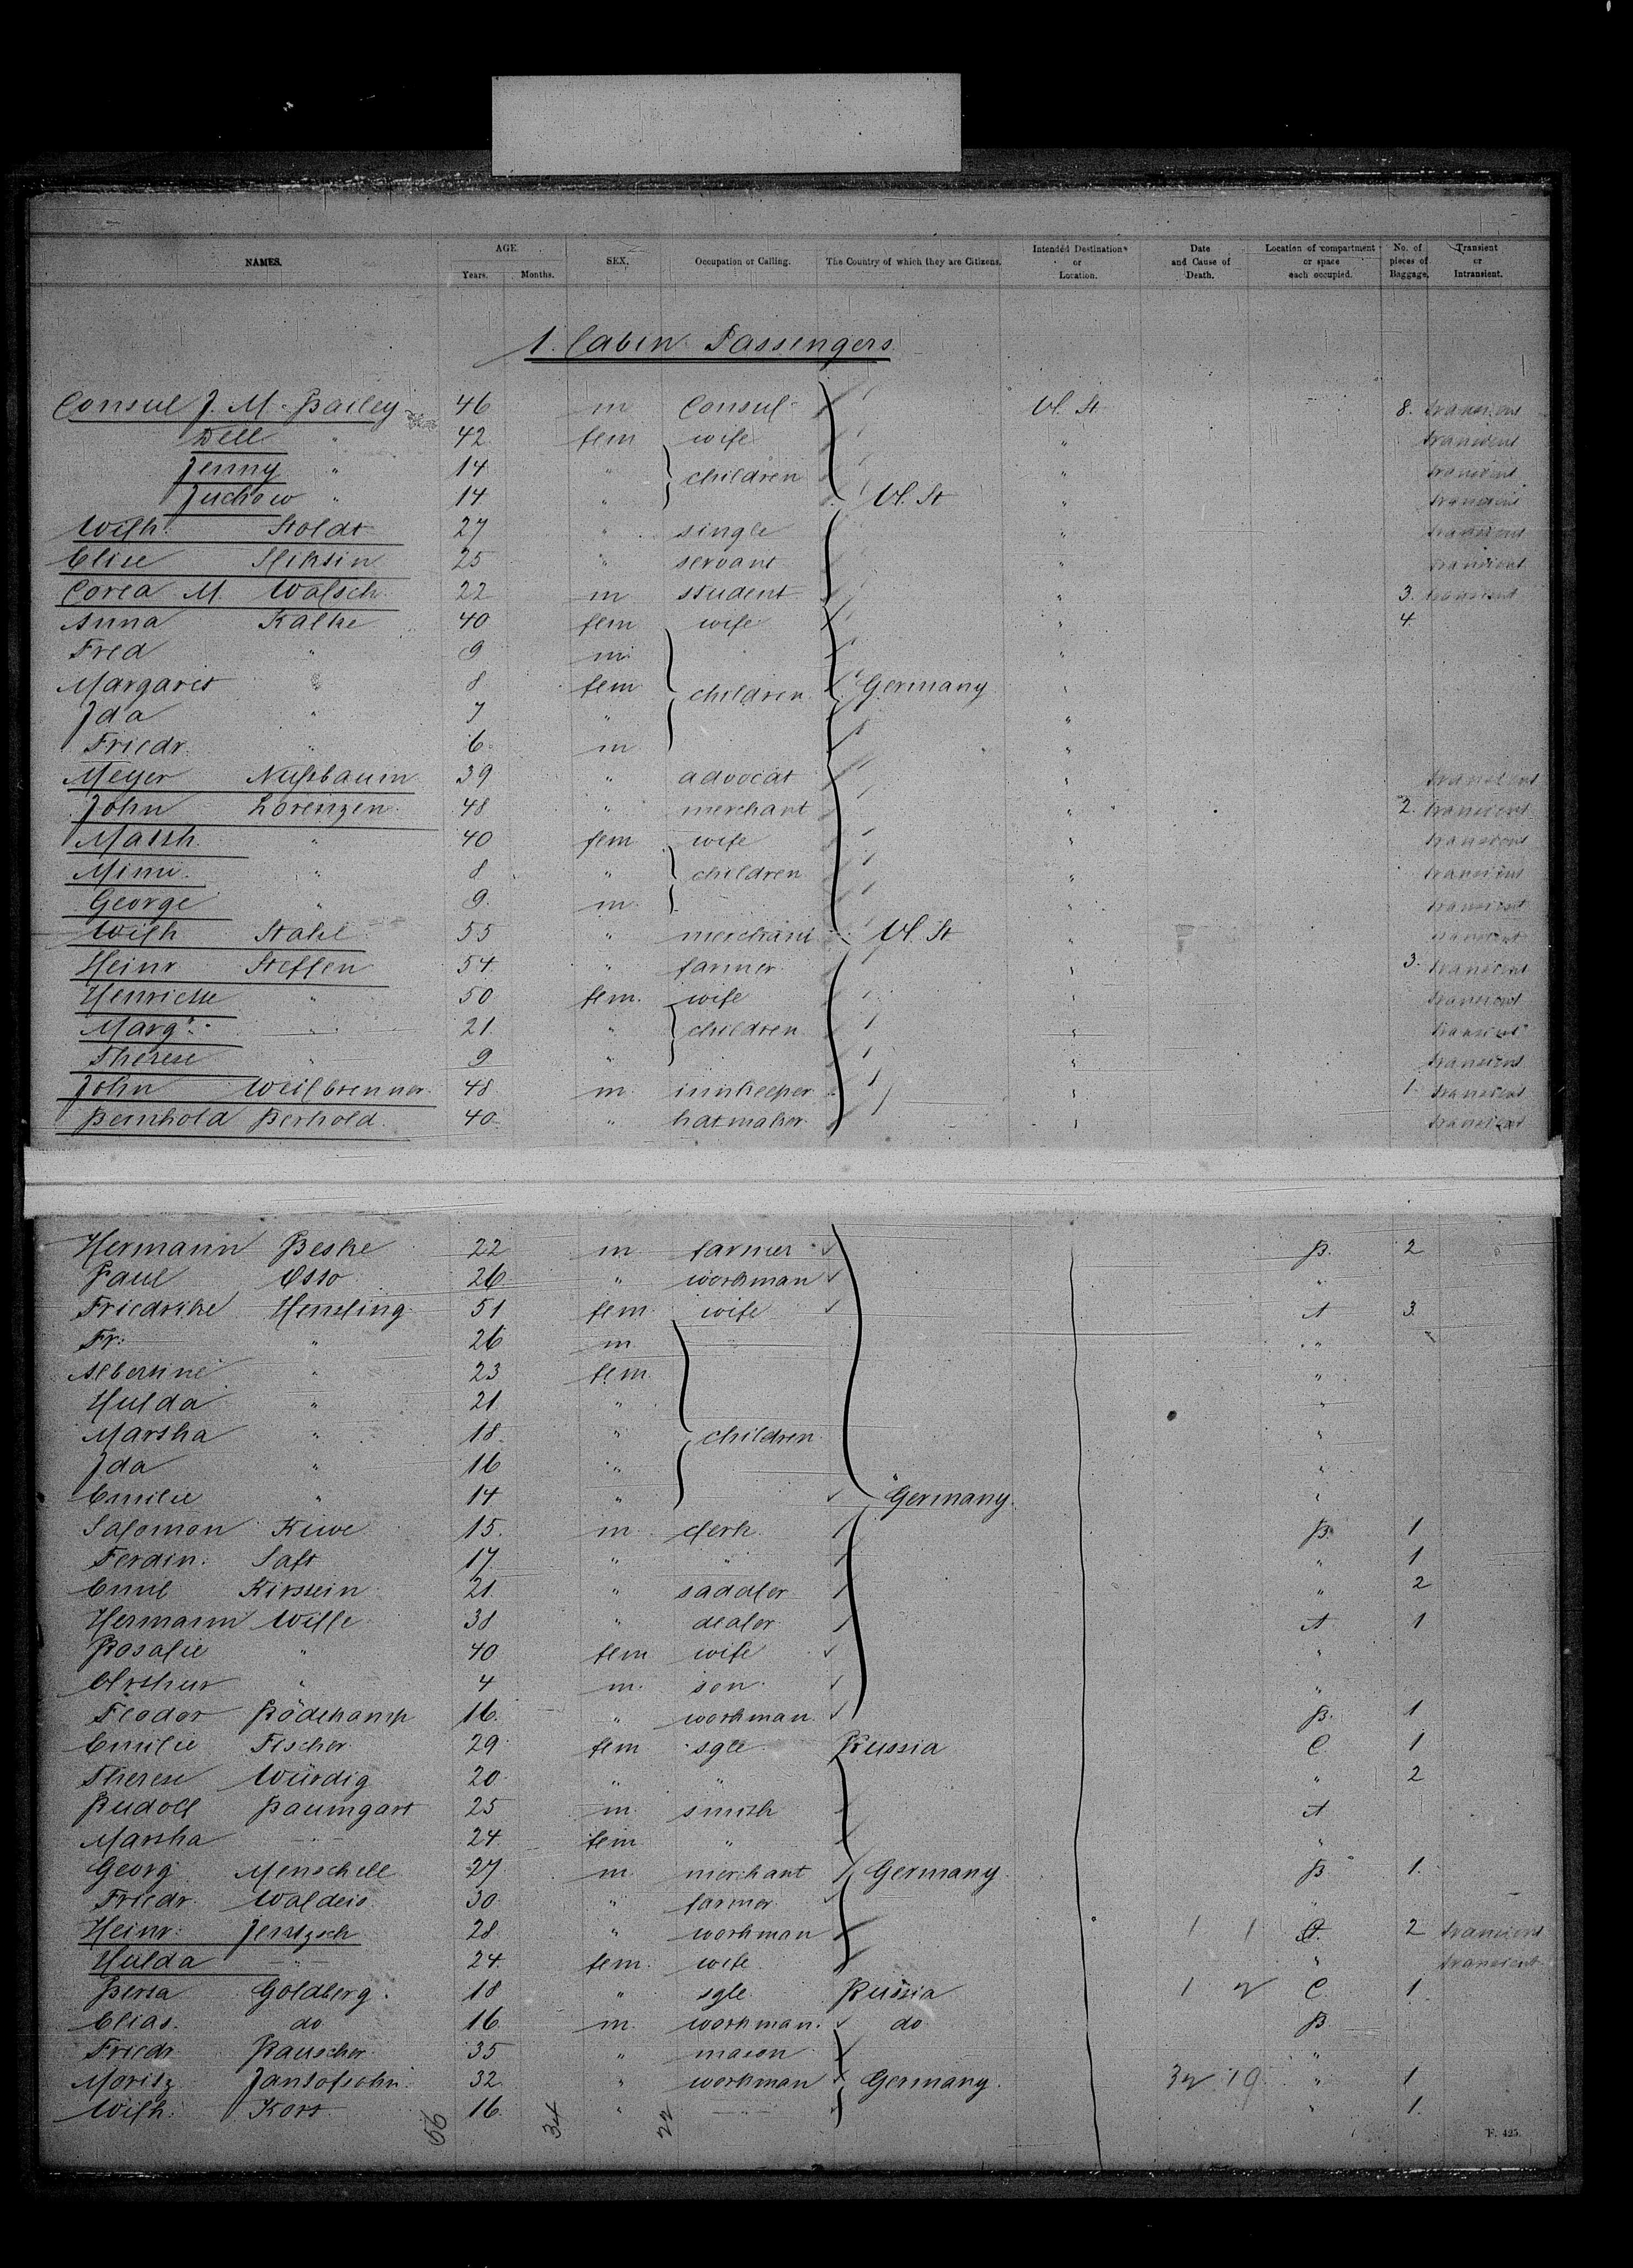 NAMES. AGE Years. Months. SEX. Occupation or Calling. The Country of which they are Citizens. Intended Destination or Location. Date and Cause of Death. Location of compartment or space each occupied. No. of pieces of Baggage. Transient or Intransient.
1. Cabin Passengers.
Consul J. M. Bailey 46 m Consul U. St 8. transient
Dell " 42 fem wife " transient
Jenny " 14 " children " transient
Juchow " 14 " U. St " transient
Wilh. Stoldt 27 " single " transient
Elise 25 " servant " transient
M. Walsch 22 m student " 3. transient
Anna Kalke 40 fem wife " 4.
Fred " 9 m "
Margaret " 8 fem children Germany "
Ida " 7 " "
Friedr. " 6 m "
Meyer Nußbaum 39 " advocat " transient
John Lorenzen 48 " merchant " 2. transient
" 40 fem wife " transient
Mimi " 8 " children " transient
George " 9. m " transient
Wilh Stahl 55 " merchant U. St " transient
Heinr Steffen 54 " farmer " 3. transient
Henriette " 50 fem. wife " transient
Marg. " 21 " children " transient
Therese " 9 " " transient
John Weilbrenner 48 m. innkeeper " 1. transient
Bernhold Berhold 40 " hatmaker " transient
Hermann Beske 22 m farmer B. 2
Paul Otto 26 " workman "
Friedrike Hensling 51 fem wife A 3.
Fr. " 26 m "
Albertine " 23 fem "
Hulda " 21 " "
Martha " 18 " children "
Ida " 16 " "
Emilie " 14 " Germany "
Salomon Kiwe 15. m clerk B. 1
Ferdin. Saft 17. " " " 1
Emil Kirstein 21. " saddler " 2
Hermann Wille 38 " dealer A 1
Rosalie " 40 fem wife "
Arthur " 4 m. son "
Feodor Rödekamp 16. " workman B. 1
Emilie Fischer 29 fem sgle Russia C 1
Therese Würdig 20 " " " 2
Rudolf Baumgart 25 m smith A
Martha " 24 fem " "
Georg Menschell 27. m merchant Germany B 1.
Friedr. Waldeis 30 " farmer "
Heinr. Jentzsch 28 " workman 1 1 A. 2 transient
Hulda " 24 fem. wife " transient
Berta Goldberg 18 " sgle Russia 1 C 1
Elias do 16 m. workman do B
Friedr Rauscher 35 " mason "
Moritz 32. " workman Germany " 1
Wilh. Kort 16. " " 1.
56 34 22
F. 425.